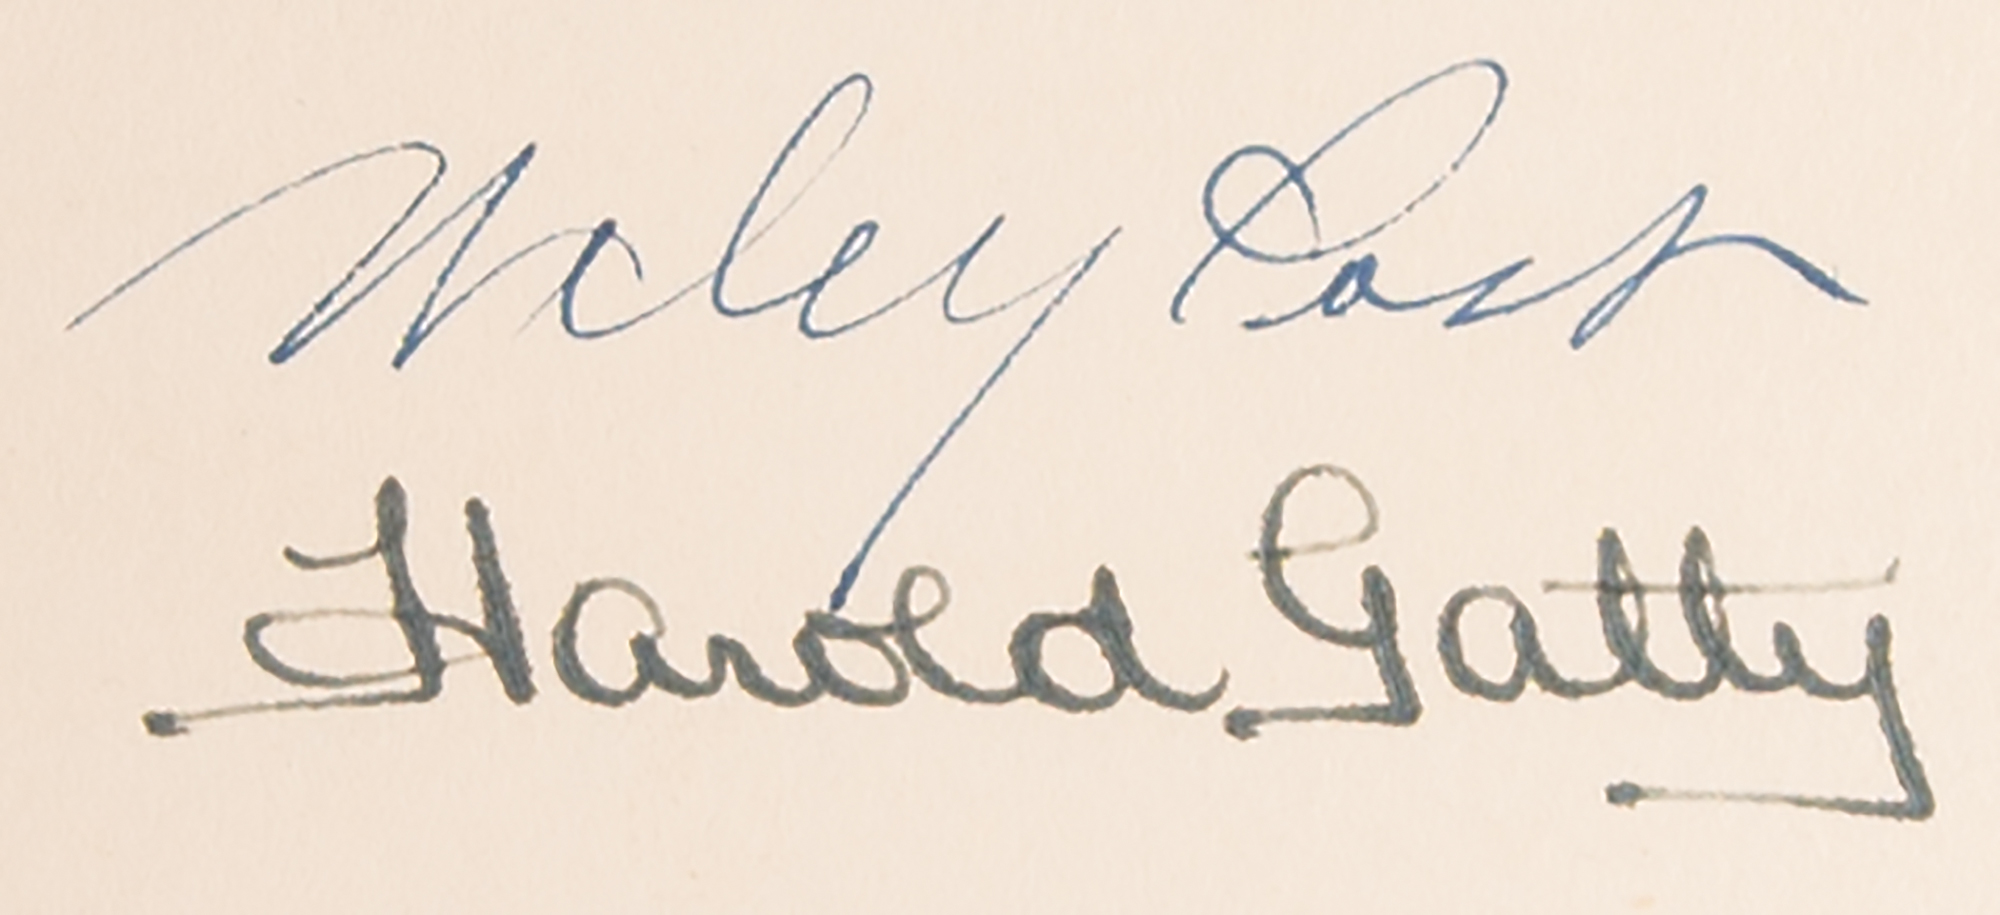 Wiley Post
Harold Gatty